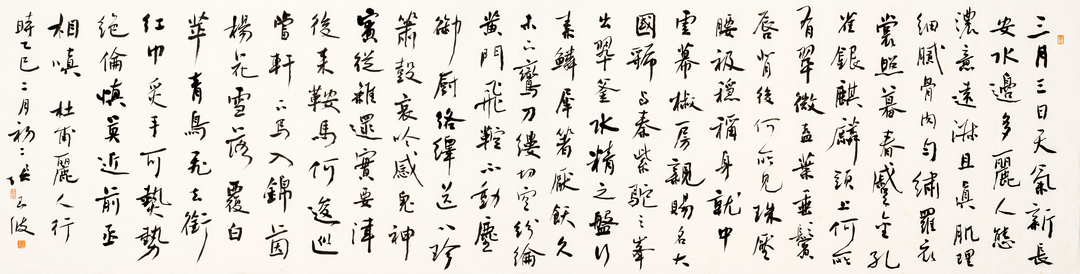 三月三日天氣新長
安水邊多麗人態
濃意遠淑且真肌理
細膩骨肉勻繡羅衣
裳照暮春蹙金孔
雀銀麒麟頭上何所
有翠微盍葉垂鬢
唇背後何所見珠壓
腰衱穩稱身就中
雲幕椒房親賜名大
國虢与秦紫駝之峯
出翠釜水精之盤行
素鱗犀箸厭飫久
未下鸞刀縷切空紛綸
黃門飛鞚不動塵
御厨絡繹送八珍
簫鼓哀吟感鬼神
賓從雜遝實要津
後來鞍馬何逡巡
當軒下馬入錦茵
楊花雪落覆白
苹青鳥飛去銜
紅巾炙手可熱勢
絕倫慎莫近前丞
相嗔 杜甫麗人行
時乙巳二月初二
波